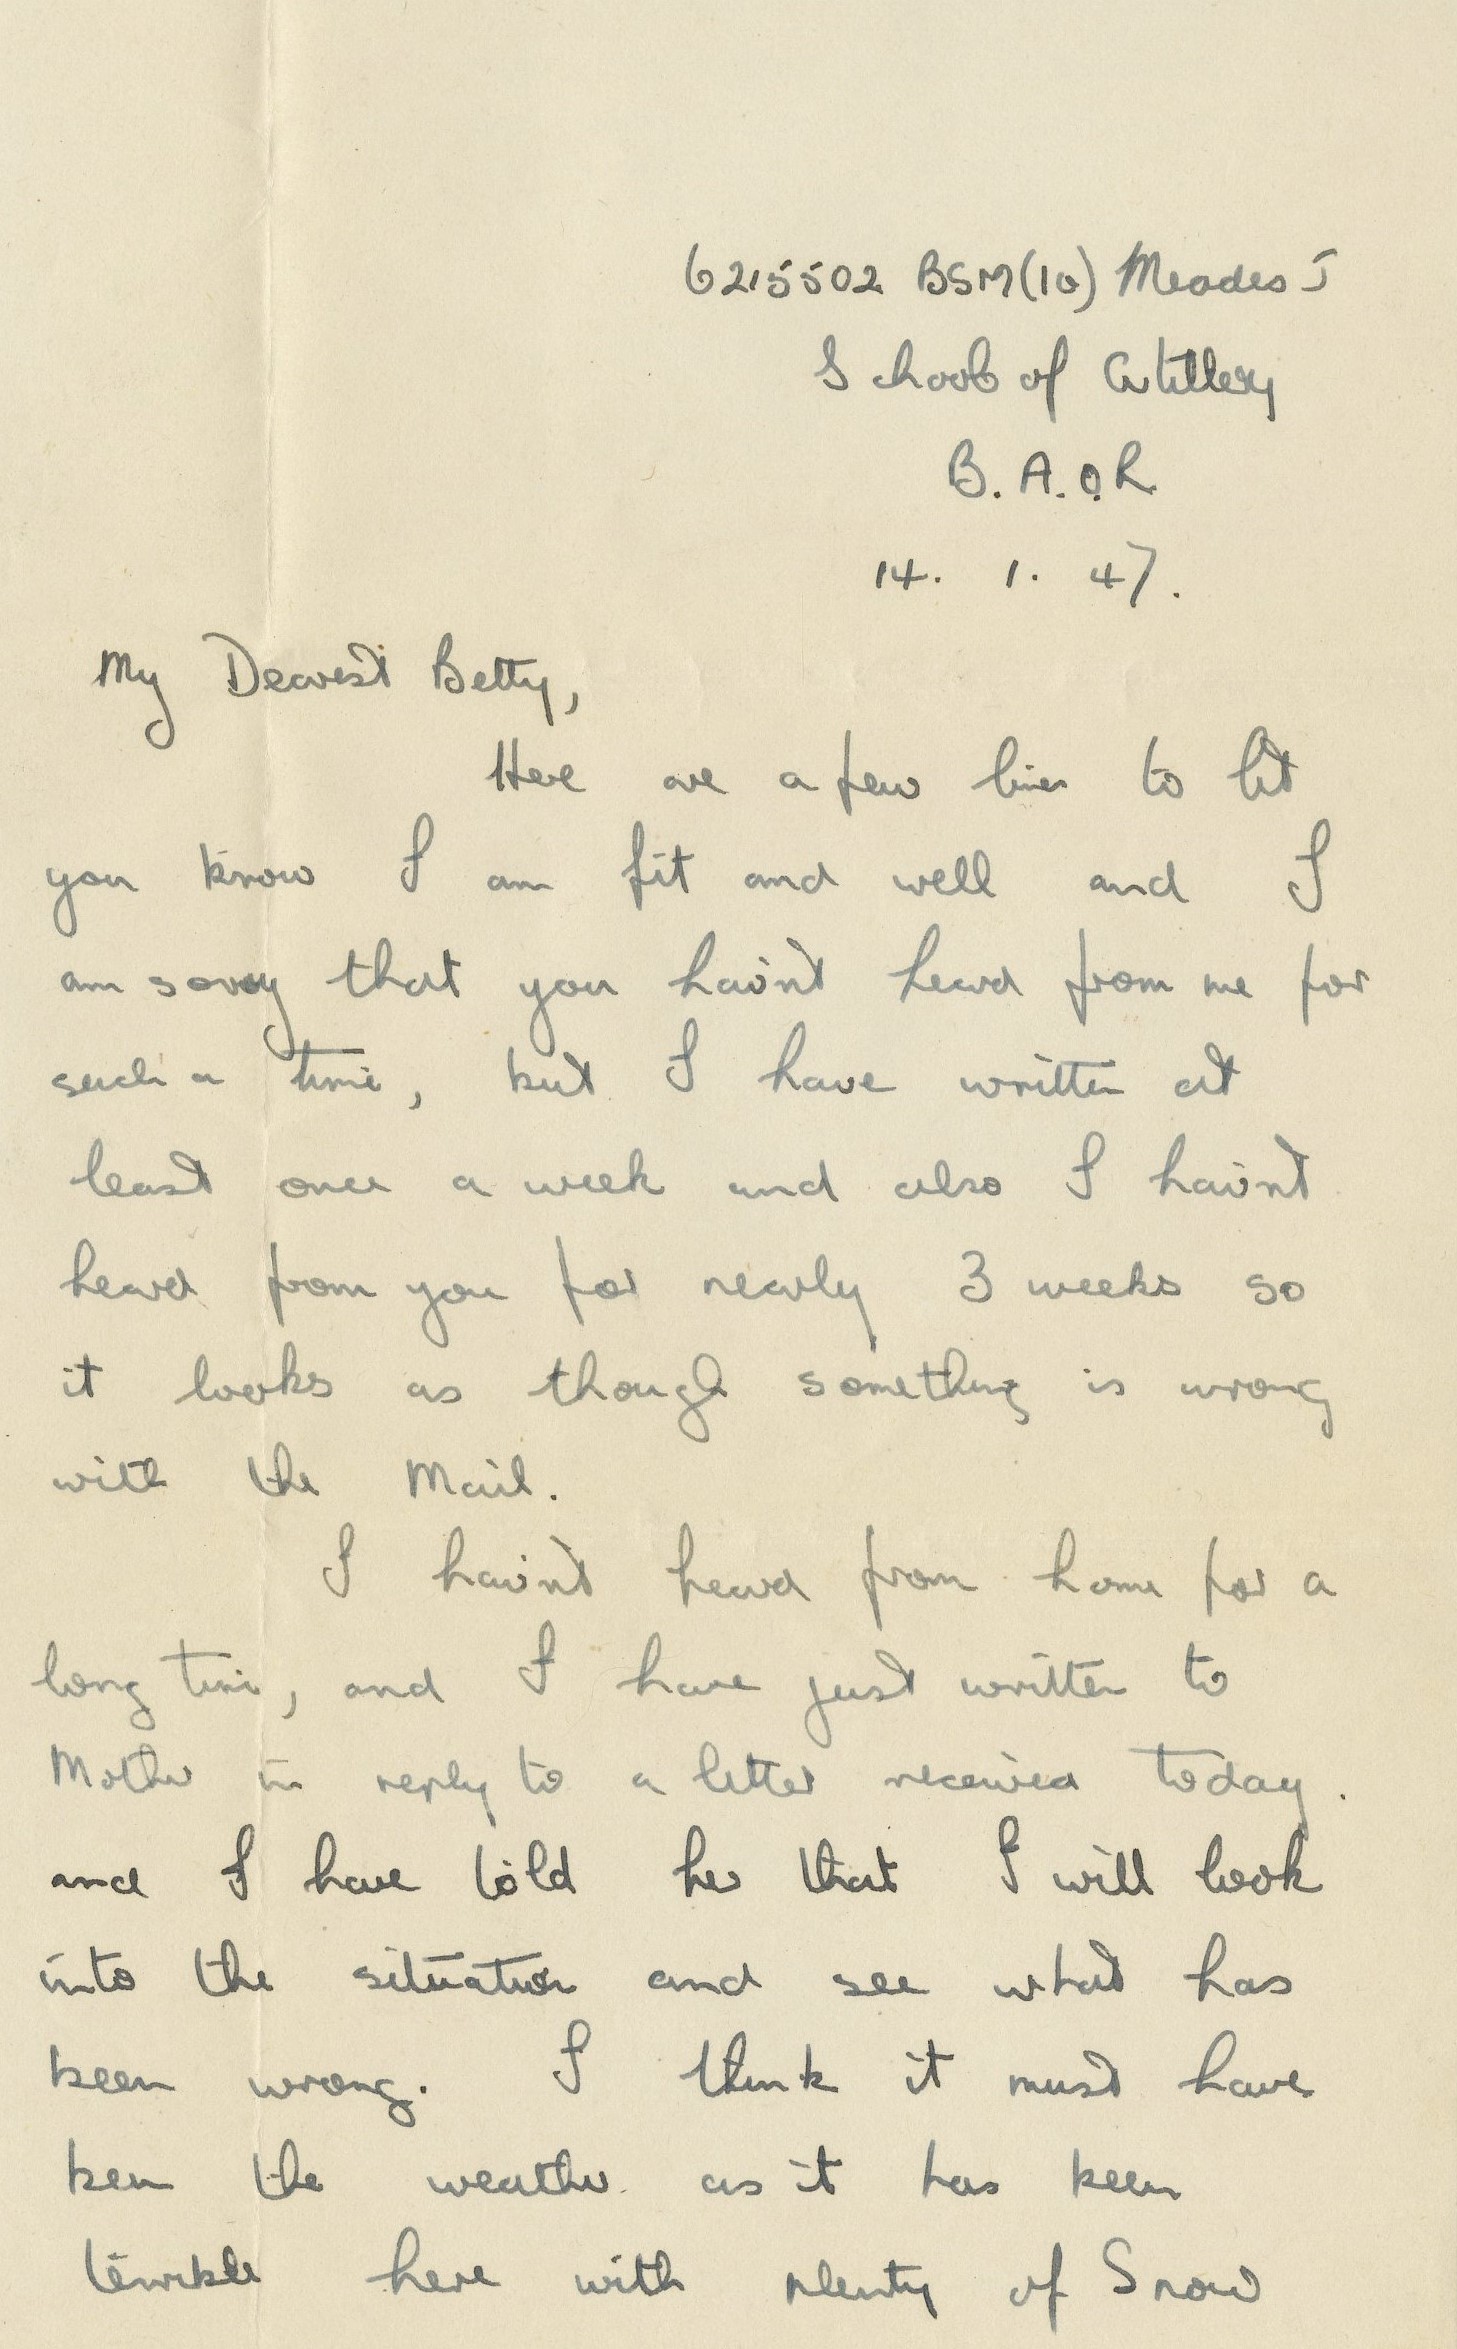 6215502 BSM(IG) Meades J
School of Artillery
B.A.O.R
14. 1. 47.
My Dearest Betty,
Here are a few lines to let
you know I am fit and well and I
am sorry that you hav'nt heard from me for
such a time, but I have written at
least once a week and also I hav'nt
heard from you for nearly 3 weeks so
it looks as though something is wrong
with the Mail.
I hav'nt heard from home for a
long time, and I have just written to
Mother in reply to a letter received today.
and I have told her that I will look
into the situation and see what has
been wrong. I think it must have
been the weather as it has been
terrible here with plenty of Snow